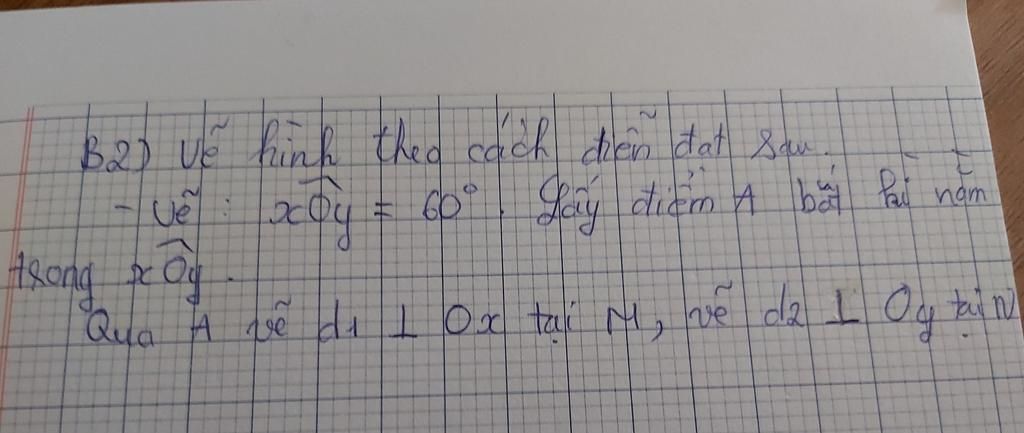 B2) Vẽ hình theo cách diễn đạt sau.
- Vẽ: xÔy = 60°. Lấy điểm A bất kì nằm
trong xÔy.
Qua A vẽ d1 ⊥ Ox tại M, vẽ d2 ⊥ Oy tại N